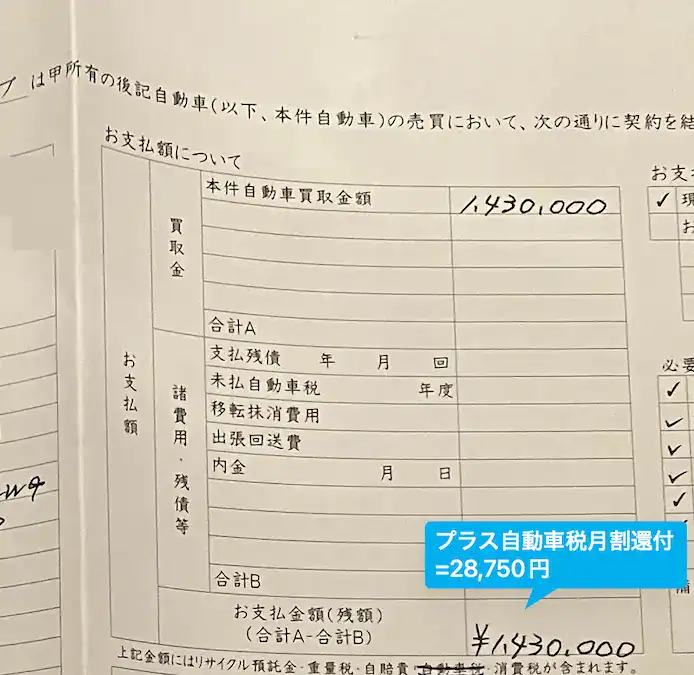 は甲所有の後記自動車(以下、本件自動車)の売買において、次の通りに契約を
お支払額について
本件自動車買取金額 1,430,000
買取金
合計A
お支払額
諸費用・残債等
支払残債 年 月 回
未払自動車税 年度
移転抹消費用
出張回送費
内金 月 日
合計B
お支払金額(残額)
(合計A-合計B)
¥1,430,000
上記金額にはリサイクル預託金・重量税・自賠責・自動車税・消費税が含まれます。
お支
✓ 現
お
必要
✓
✓
✓
✓
✓
備
プラス自動車税月割還付
=28,750円